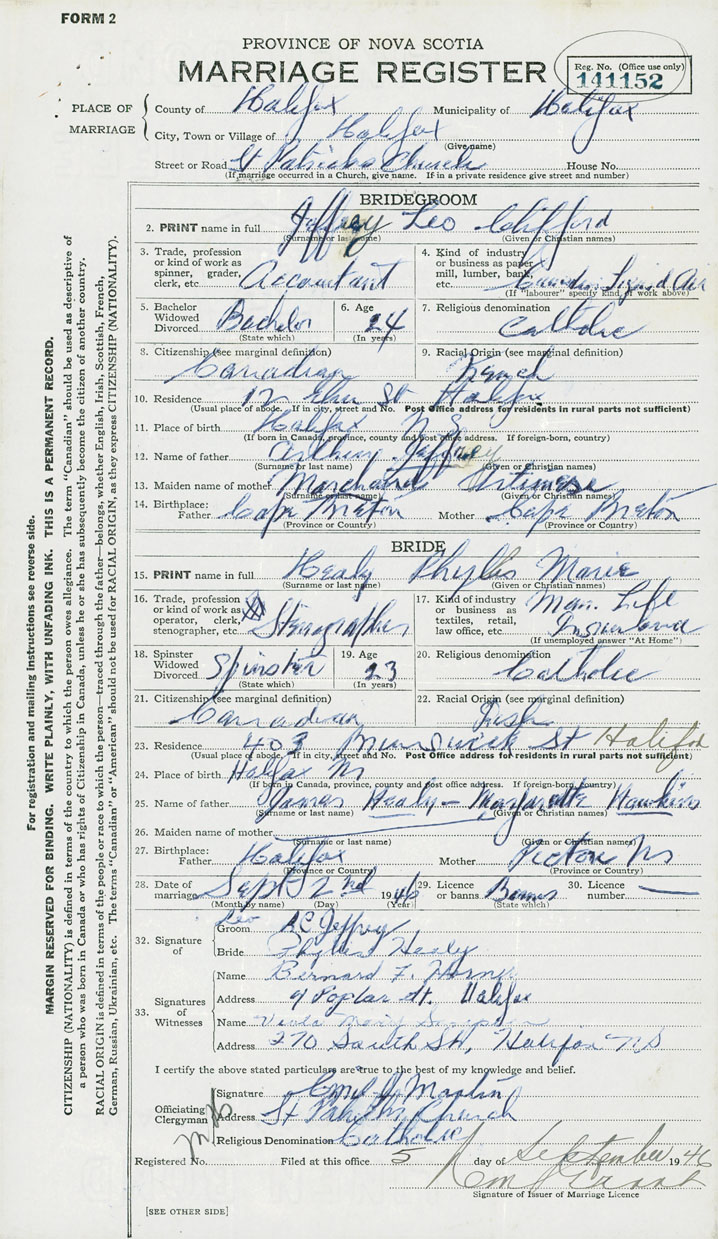 FORM 2
PROVINCE OF NOVA SCOTIA
MARRIAGE REGISTER
Reg. No. (Office use only)
141152
PLACE OF MARRIAGE
County of Halifax Municipality of Halifax
City, Town or Village of Halifax
(Give name)
Street or Road St Patricks Church House No.
(If marriage occurred in a Church, give name. If in a private residence give street and number)
BRIDEGROOM
2. PRINT name in full Jeffrey Leo Clifford
(Surname or last name) (Given or Christian names)
3. Trade, profession or kind of work as spinner, grader, clerk, etc. Accountant
4. Kind of industry or business as paper mill, lumber, bank, etc. Canadian Liquid Air
(If "labourer" specify kind of work above)
5. Bachelor Widowed Divorced Bachelor
(State which)
6. Age 24
(In years)
7. Religious denomination Catholic
8. Citizenship (see marginal definition) Canadian
9. Racial Origin (see marginal definition) French
10. Residence 12 Elm St Halifax
(Usual place of abode. If in city, street and No. Post Office address for residents in rural parts not sufficient)
11. Place of birth Halifax N S
(If born in Canada, province, county and post office address. If foreign-born, country)
12. Name of father Arthur Jeffrey
(Surname or last name) (Given or Christian names)
13. Maiden name of mother Marchand
(Surname or last name) (Given or Christian names)
14. Birthplace: Father Cape Breton Mother Cape Breton
(Province or Country) (Province or Country)
BRIDE
15. PRINT name in full Healy Phyllis Marie
(Surname or last name) (Given or Christian names)
16. Trade, profession or kind of work as operator, clerk, stenographer, etc. Stenographer
17. Kind of industry or business as textiles, retail, law office, etc. Man. Life Insurance
(If unemployed answer "At Home")
18. Spinster Widowed Divorced Spinster
(State which)
19. Age 23
(In years)
20. Religious denomination Catholic
21. Citizenship (see marginal definition) Canadian
22. Racial Origin (see marginal definition) Irish
23. Residence 403 Brunswick St Halifax
(Usual place of abode. If in city, street and No. Post Office address for residents in rural parts not sufficient)
24. Place of birth Halifax Ns
(If born in Canada, province, county and post office address. If foreign-born, country)
25. Name of father James Healy - Margarette Hawkins
(Surname or last name) (Given or Christian names)
26. Maiden name of mother
(Surname or last name) (Given or Christian names)
27. Birthplace: Father Halifax Mother Pictou Ns
(Province or Country) (Province or Country)
28. Date of marriage Sept 2nd 1946
(Month by name) (Day) (Year)
29. Licence or banns Banns
(State which)
30. Licence number
32. Signature of
Leo
Groom A C Jeffrey
Bride Phyllis Healy
33. Signatures of Witnesses
Name Bernard F.
Address 9 Poplar St. Halifax
Name Mary
Address 270 South St, Halifax NS
I certify the above stated particulars are true to the best of my knowledge and belief.
Officiating Clergyman
Signature Martin
Address St Church
Religious Denomination Catholic
Registered No. Filed at this office 5 day of September 1946
Signature of Issuer of Marriage Licence
[SEE OTHER SIDE]
For registration and mailing instructions see reverse side.
MARGIN RESERVED FOR BINDING. WRITE PLAINLY, WITH UNFADING INK. THIS IS A PERMANENT RECORD.
CITIZENSHIP (NATIONALITY) is defined in terms of the country to which the person owes allegiance. The term "Canadian" should be used as descriptive of
a person who was born in Canada or who has rights of Citizenship in Canada, unless he or she has subsequently become the citizen of another country.
RACIAL ORIGIN is defined in terms of the people or race to which the person—traced through the father—belongs, whether English, Irish, Scottish, French,
German, Russian, Ukrainian, etc. The terms "Canadian" or "American" should not be used for RACIAL ORIGIN, as they express CITIZENSHIP (NATIONALITY).